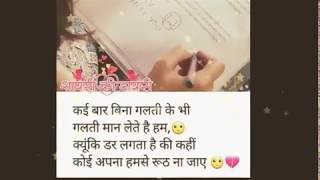 शायरी की डायरी
कई बार बिना गलती के भी
गलती मान लेते है हम,🙁
क्यूंकि डर लगता है की कहीं
कोई अपना हमसे रूठ ना जाए 🙁💔